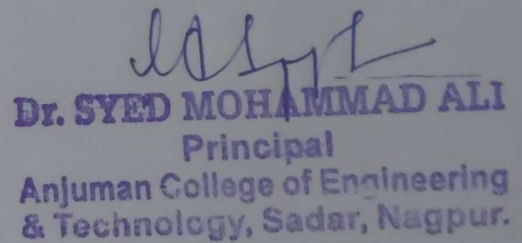 Dr. SYED MOHAMMAD ALI
Principal
Anjuman College of Engineering
& Technology, Sadar, Nagpur.